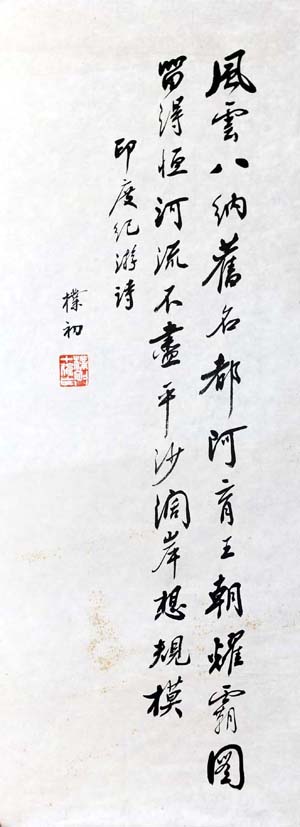 風雲八納舊名都阿育王朝耀霸圖
留得恒河流不盡平沙闊岸想規模
印度紀游詩
樸初